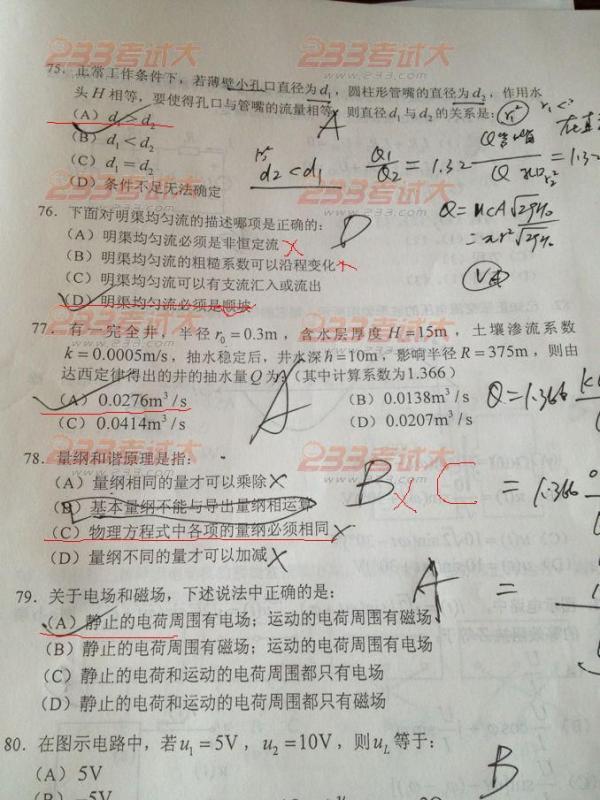 233考试大
75. 正常工作条件下，若薄壁小孔口直径为d₁，圆柱形管嘴的直径为d₂，作用水
头H相等，要使得孔口与管嘴的流量相等，则直径d₁与d₂的关系是：
A
(A) d₁>d₂
(B) d₁<d₂
(C) d₁=d₂
(D) 条件不足无法确定
d₂<d₁
Q₁/Q₂ = 1.32
Q = μcA√2gH₀
76. 下面对明渠均匀流的描述哪项是正确的：
D
(A) 明渠均匀流必须是非恒定流
(B) 明渠均匀流的粗糙系数可以沿程变化
(C) 明渠均匀流可以有支流汇入或流出
(D) 明渠均匀流必须是顺坡
77. 有一完全井，半径r₀=0.3m，含水层厚度H=15m，土壤渗流系数
k=0.0005m/s，抽水稳定后，井水深h=10m，影响半径R=375m，则由
达西定律得出的井的抽水量Q为：(其中计算系数为1.366)
(A) 0.0276m³/s (B) 0.0138m³/s
(C) 0.0414m³/s (D) 0.0207m³/s
A
Q=1.366
233考试大 233考试大
78. 量纲和谐原理是指：
(A) 量纲相同的量才可以乘除
(B) 基本量纲不能与导出量纲相运算
(C) 物理方程式中各项的量纲必须相同
(D) 量纲不同的量才可以加减
B C
=1.366
79. 关于电场和磁场，下述说法中正确的是：
A
(A) 静止的电荷周围有电场；运动的电荷周围有磁场
(B) 静止的电荷周围有磁场；运动的电荷周围有电场
(C) 静止的电荷和运动的电荷周围都只有电场
(D) 静止的电荷和运动的电荷周围都只有磁场
80. 在图示电路中，若u₁=5V，u₂=10V，则u_L等于：
B
(A) 5V
(B) −5V